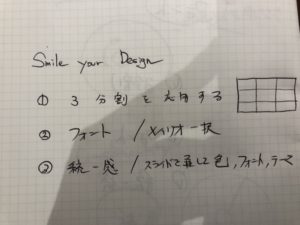 Smile your Design
① 3分割を応用する
② フォント / メイリオ一択
② 統一感 / スライドで通して色,フォント,テーマ